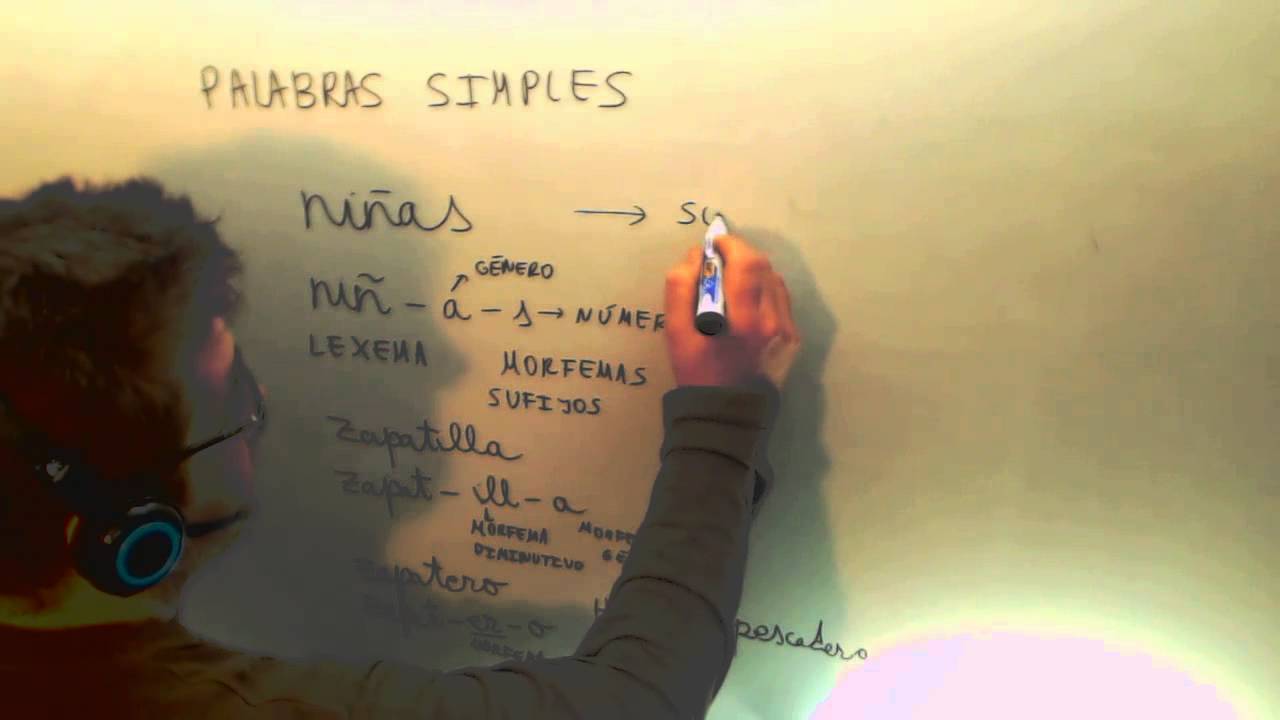 PALABRAS SIMPLES
niñas →
GÉNERO
niñ - a - s → NÚMER
LEXEMA MORFEMAS
SUFIJOS
Zapatilla
Zapat - ill - a
MORFEMA
DIMINUTIVO
Zapatero
Zapat - er - o
pescadero